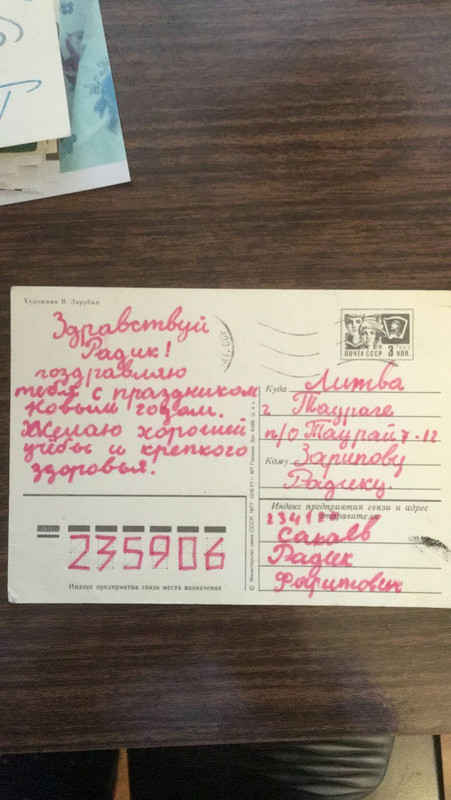 Художник В. Зарубин
Здравствуй
Радик!
поздравляю
тебя с праздником
Новым годом.
Желаю хорошей
учёбы и крепкого
здоровья.
ПОЧТА СССР 3 КОП.
Куда Литва
г Таураге
п/о Таурай 7-12
Кому Зарипову
Радику.
Индекс предприятия связи и адрес
отправителя
Радик
235906
Индекс предприятия связи места назначения